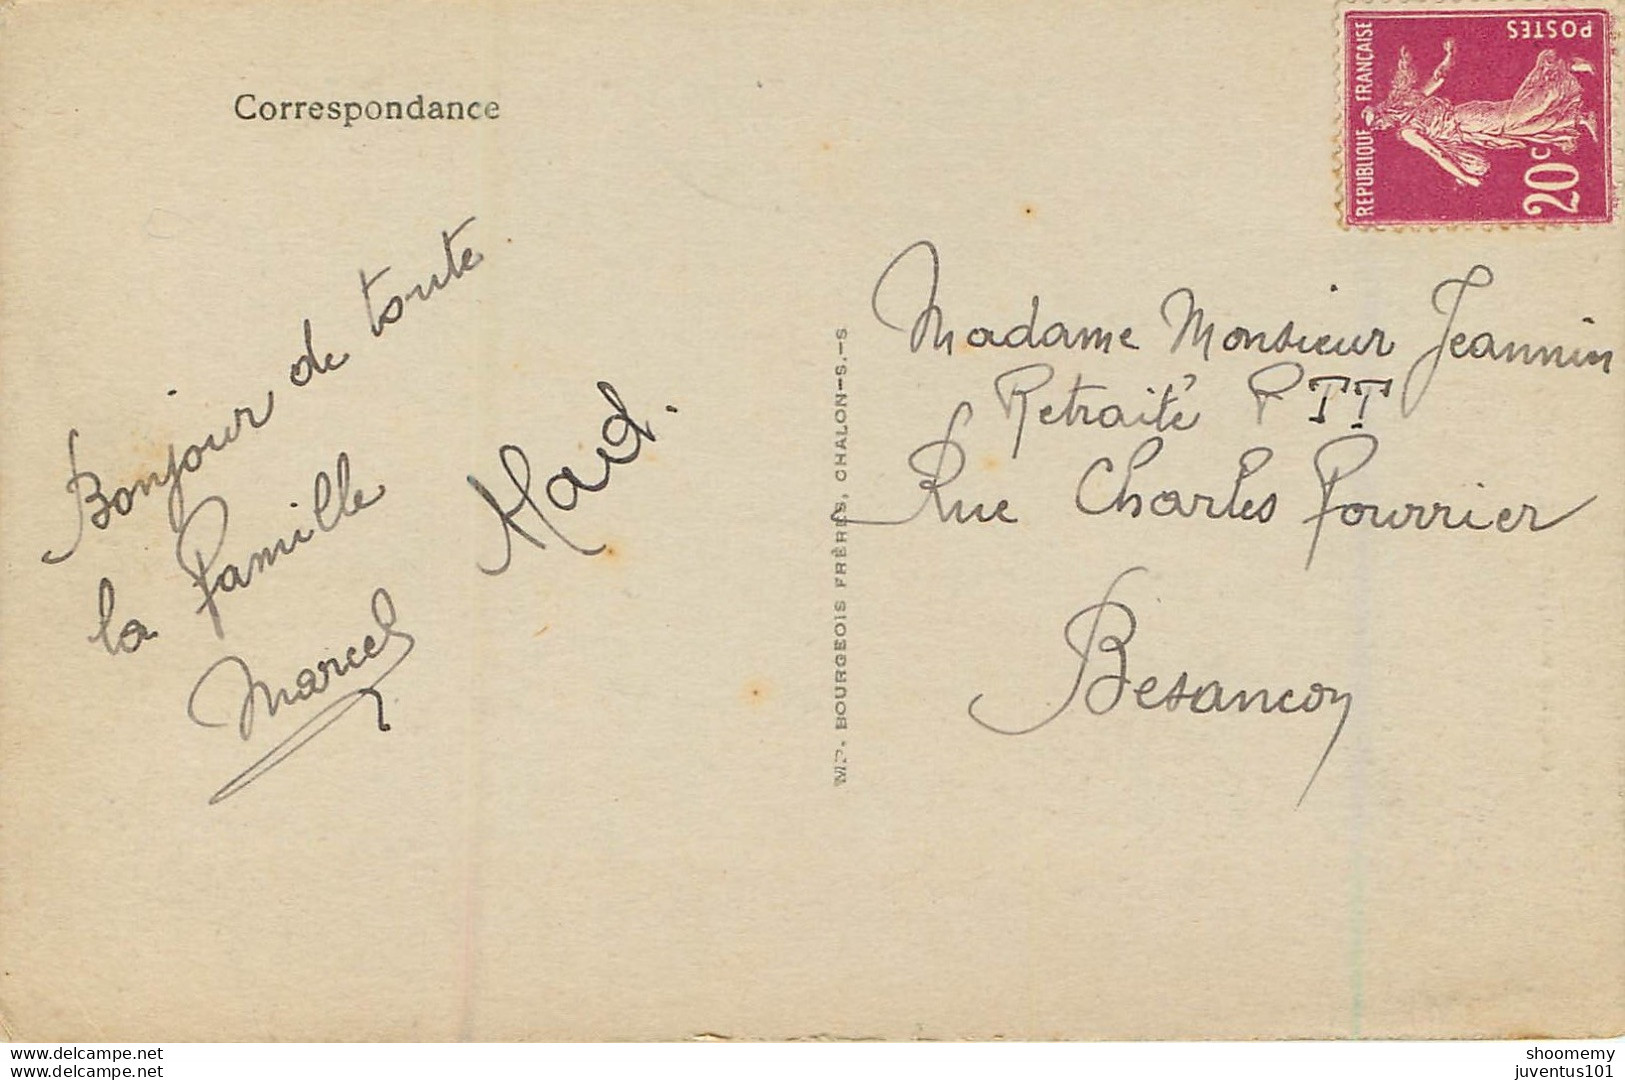 Correspondance
Bonjour de toute
la famille
Marcel
Maud.
IMP. BOURGEOIS FRÈRES, CHALON-S.-S
REPUBLIQUE FRANÇAISE
POSTES
20c
Madame Monsieur Jeannin
Retraité PTT
Rue Charles Fourrier
Besancon
www.delcampe.net
www.delcampe.net
shoomemy
juventus101